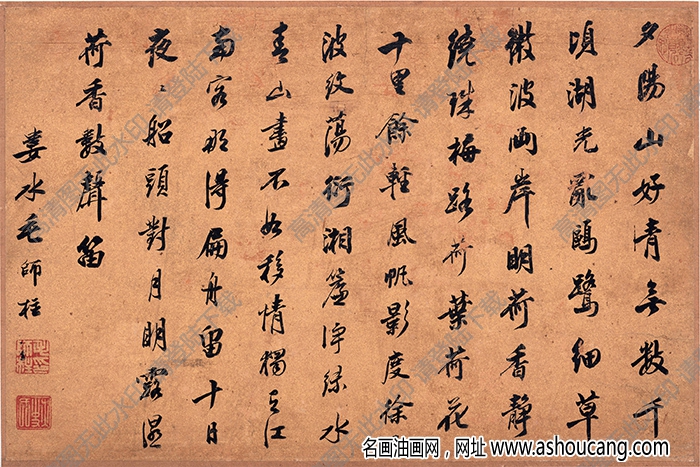 夕陽山好清無數千
頃湖光亂鷗鷺細草
微波兩岸明荷香靜
繞珠梅路荷葉荷花
十里餘輕風帆影度徐
波紋蕩衍湘簾淨綠水
青山畫不如移情獨立江
南客那得扁舟留十日
夜〻船頭對月明露濕
荷香數聲笛
婁水毛師柱
高清图无此水印 请登陆下载
名画油画网，网址 www.ashoucang.com